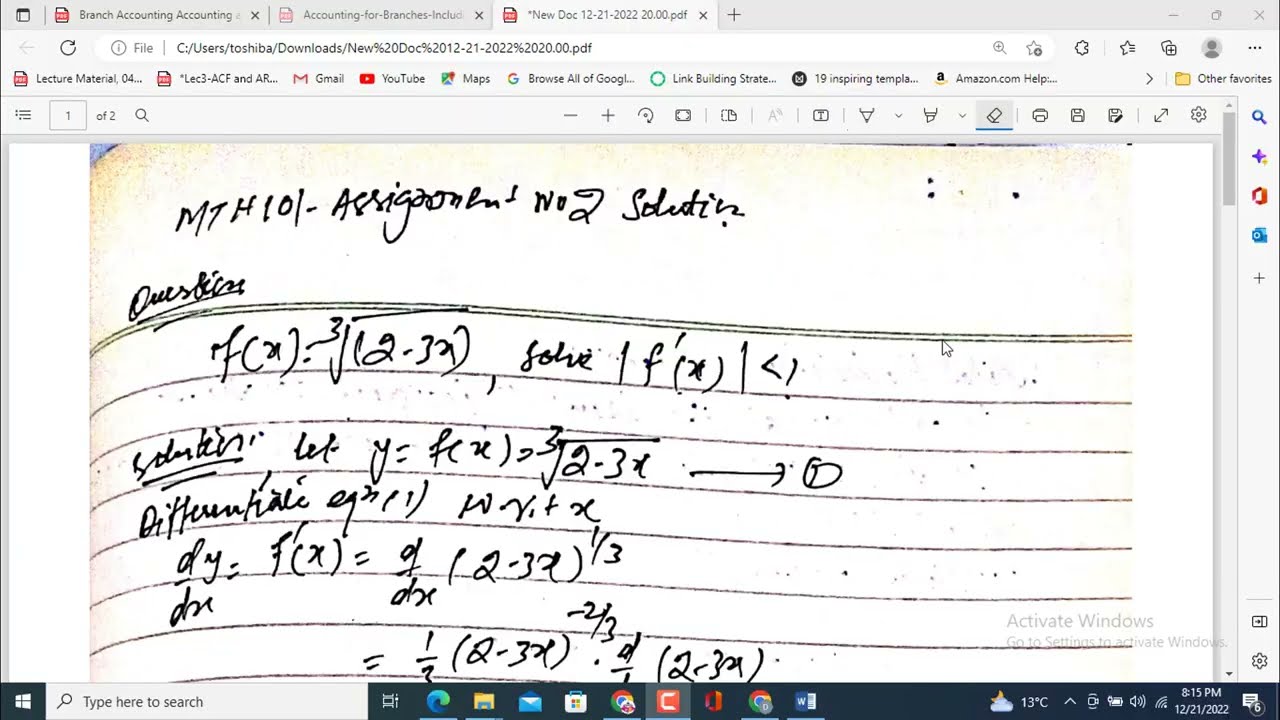 Branch Accounting Accounting a
Accounting-for-Branches-Includi
*New Doc 12-21-2022 20.00.pdf
File C:/Users/toshiba/Downloads/New%20Doc%2012-21-2022%2020.00.pdf
Lecture Material, 04... *Lec3-ACF and AR... Gmail YouTube Maps Browse All of Googl... Link Building Strate... 19 inspiring templa... Amazon.com Help:... Other favorites
1 of 2
MTH101- Assignment No 2 Solution
Question
f(x) = ∛(2-3x), solve |f'(x)| < 1
Solution: Let y = f(x) = ∛2-3x → ①
Differentiate eqn (1) w.r.t x
dy/dx = f'(x) = d/dx (2-3x)^1/3
= 1/3 (2-3x)^-2/3 . d/d (2-3x)
Activate Windows
Go to Settings to activate Windows.
Type here to search
13°C
8:15 PM
12/21/2022
6